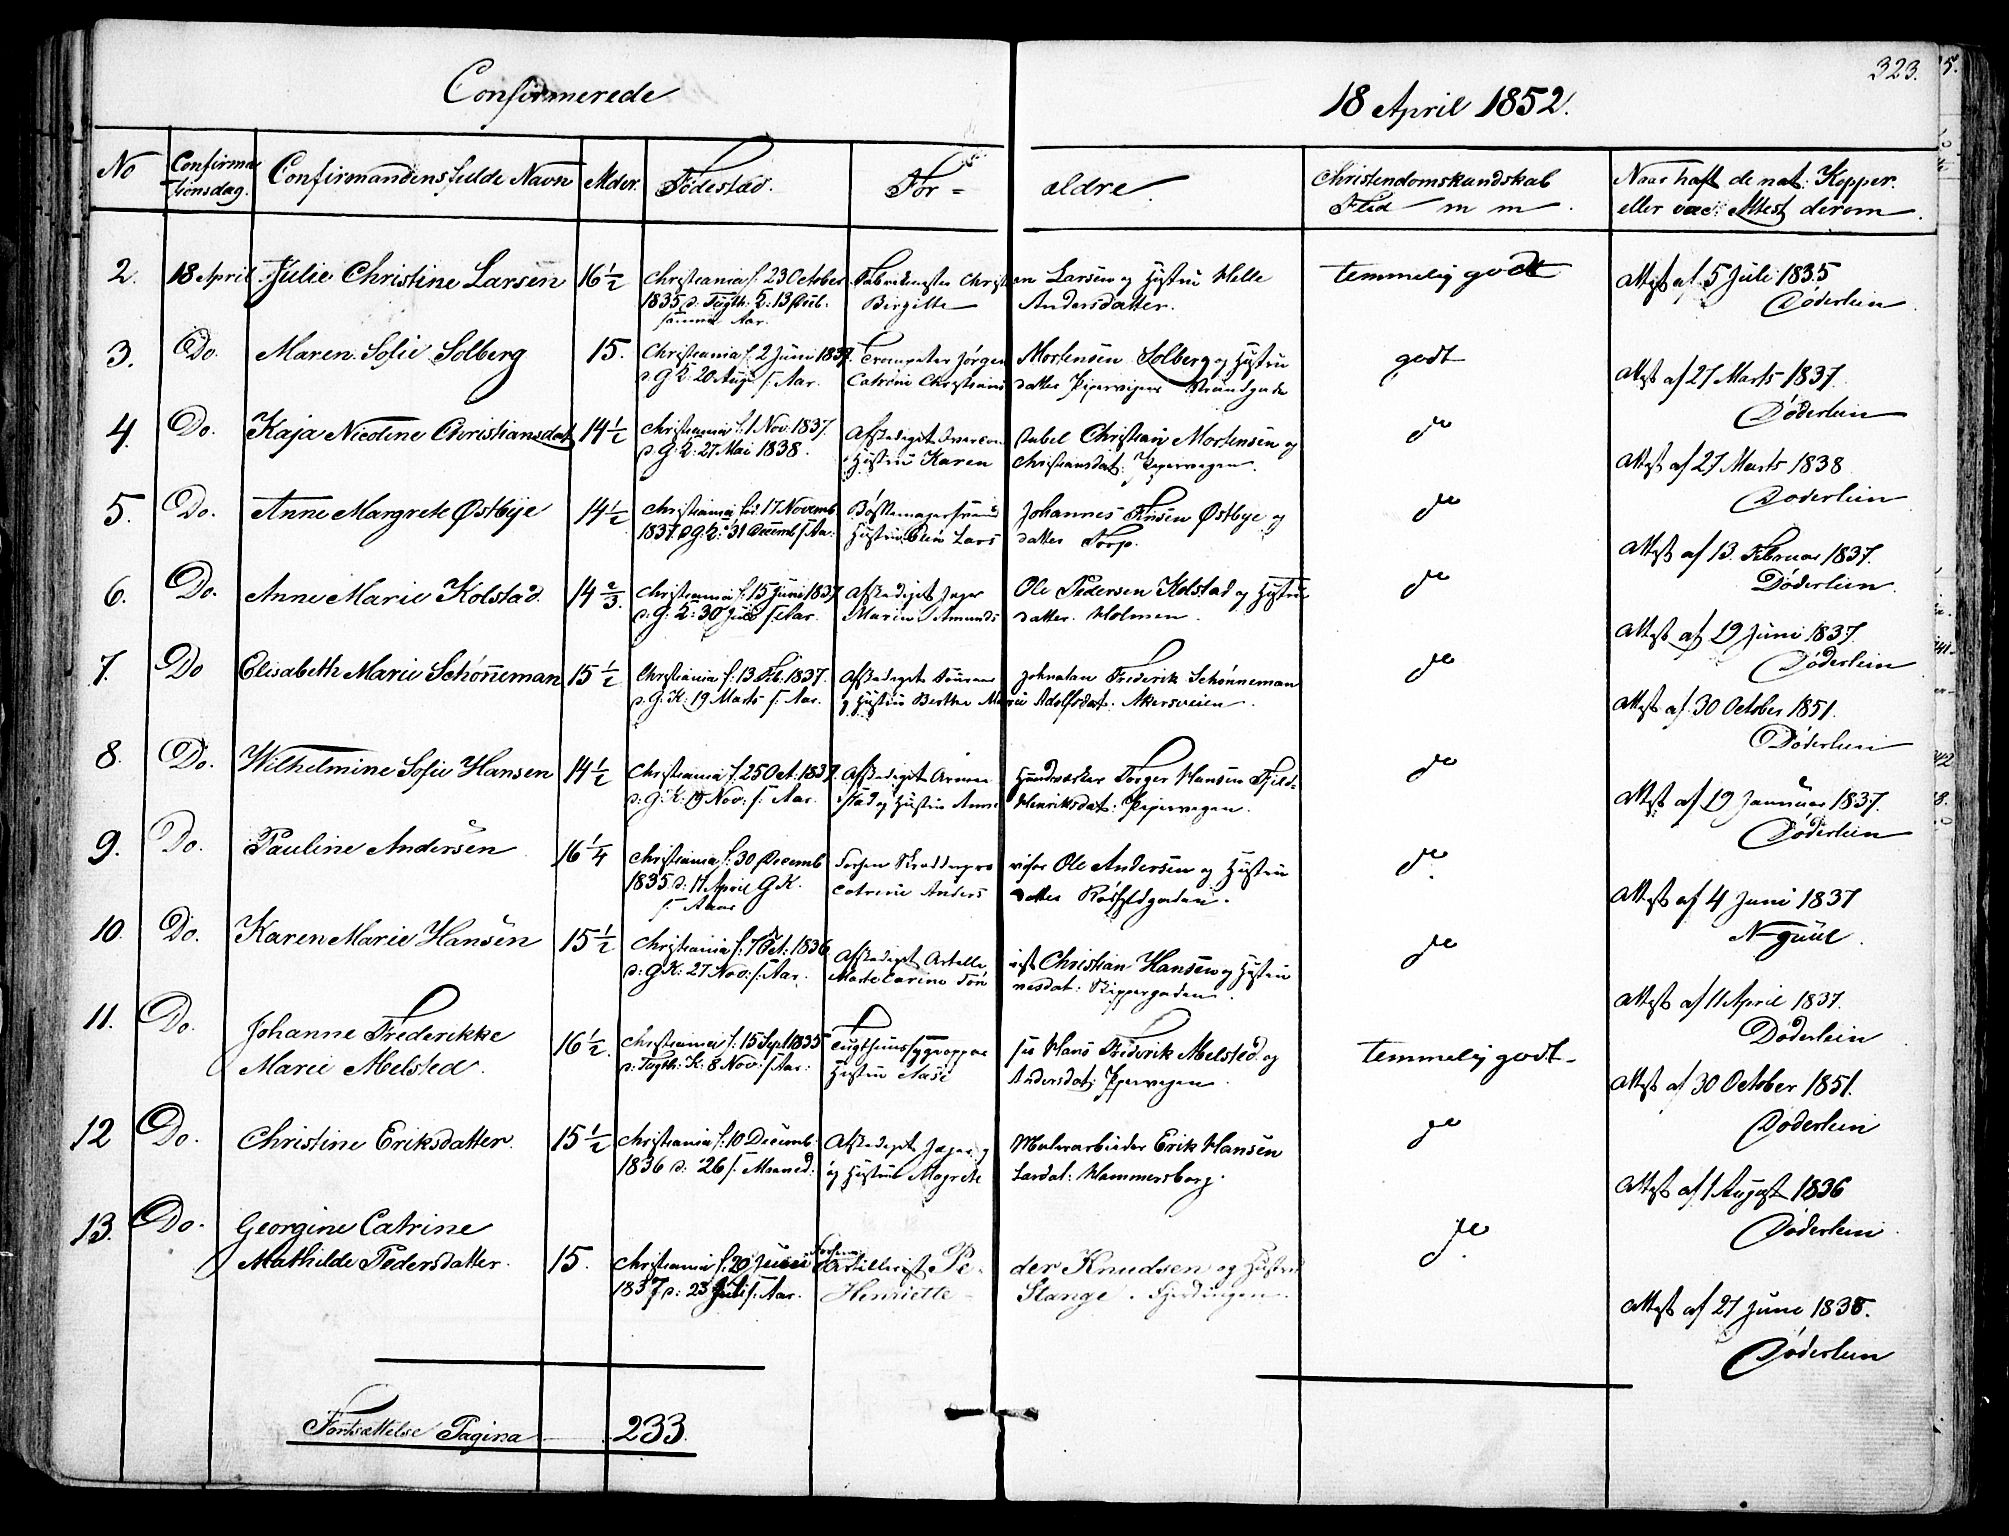 323.
Confirmerede
18 April 1852.
No
Confirma
tionsdag.
Confirmandens fulde Navn
Alder.
Fødested.
For-
ældre.
Christendomskundskab
Flid m m.
Naar haft de nat: Kopper.
eller vac: Attest derom.
2. 18 April Julie Christine Larsen 16 1/2 Christiania f. 23 October Fabrikmester Christen Larsen og Hustru Helle temmelig godt Attest af 5 Juli 1835
1835 d: Tugth: K: 13
samme Aar. Birgitte Andersdatter. Døderlein
3. Do. Maren Sofie Solberg 15. Christiania f. 2 Juni 1837. Trompeter Jørgen Mortensen Solberg og Hustru godt Attest af 27 Marts 1837.
d. G. K: 20 Aug f. Aar. Catrine Christiansdatter Pipervigen Strandgade Døderlein
4. Do. Kaja Nicoline Christiansdat 14 1/2 Christiania f. 1 Nov: 1837. Afskediget Christian Mortensen og do Attest af 27 Marts 1838
d. G. K: 27 Mai 1838. Hustru Karen Christiansdat: Pipervigen. Døderlein
5. Do. Anne Margrete Østbye 14 1/2 Christiania fød. 17 Novemb Bøssemagersvend Johannes Østbye og do Attest af 13. Februar 1837.
1837. d G: K: 31 Decemb f. Aar. Hustru Lars datter Torp. Døderlein
6. Do. Anne Marie Kolstad 14 2/3. Christiania f. 15 Juni 1837 Afskediget Jæger Ole Pedersen Kolstad og Hustru do Attest af 19 Juni 1837.
d: G: K: 30 Juli f. Aar. Maria Amunds datter. Holmen. Døderlein
7. Do Elisabeth Marie Schønneman 15 1/2 Christiania f: 13 Feb. 1837. Afskediget Johnatan Frederik Schønneman do Attest af 30 October 1851.
d. G. K: 19 Marts f. Aar. og Hustru Berthe Marie Adolfsdat. Akersveien. Døderlein
8. Do. Wilhelmine Sofie Hansen 14 1/2 Christiania f. 25 Oct: 1837. Afskediget Haandværker Torger Hansen Fjeld- do Attest af 19 Januar 1837.
d: G: K: 19 Nov: f: Aar. stad og Hustru Anne Henriksdat: Pipervigen. Døderlein
9. Do. Pauline Andersen 16 1/4 Christiania f: 30 Decemb Ole Andersen og Hustru do. Attest af 4 Juni 1837
1835 d: 17 April G K.
f. Aar Catrine Anders datter N-guul.
10. Do. Karen Marie Hansen 15 1/2 Christiania f. 7 Oct: 1836 Afskediget Artellerist Christian Hansen og Hustru do Attest af 11 April 1837.
d: G K: 27 Nov: f: Aar. Marte Carine Tønnesdat: Skippergaden. Døderlein
11. Do. Johanne Frederikke
Marie Melsted. 16 1/2. Christiania f. 15 Sept 1835 Hans Frederik Melsted og temmelig godt. Attest af 30 October 1851.
d: Tugth: K: 8 Nov: f Aar: Hustru Aase Andersdat: Pipervigen. Døderlein
12 Do. Christine Eriksdatter. 15 1/2 Christiania f: 10 Decemb: Afskediget Jæger og Malerarbeider Erik Hansen do Attest af 1 August 1836
1836 d: 26 f. Maaned. og Hustru Magrete Larsdat: Hammersborg. Døderlein
13. Do. Georgine Catrine
Mathilde Pedersdatter. 15. Christiania f: 20 Juni Artillerist Peder Knudsen og Hustru do. Attest af 27 Juni 1838.
1837 d: 23 Juli f. Aar. Henriette Stange. Fjerdingen. Døderlein
Fortsættelse Pagina 233.